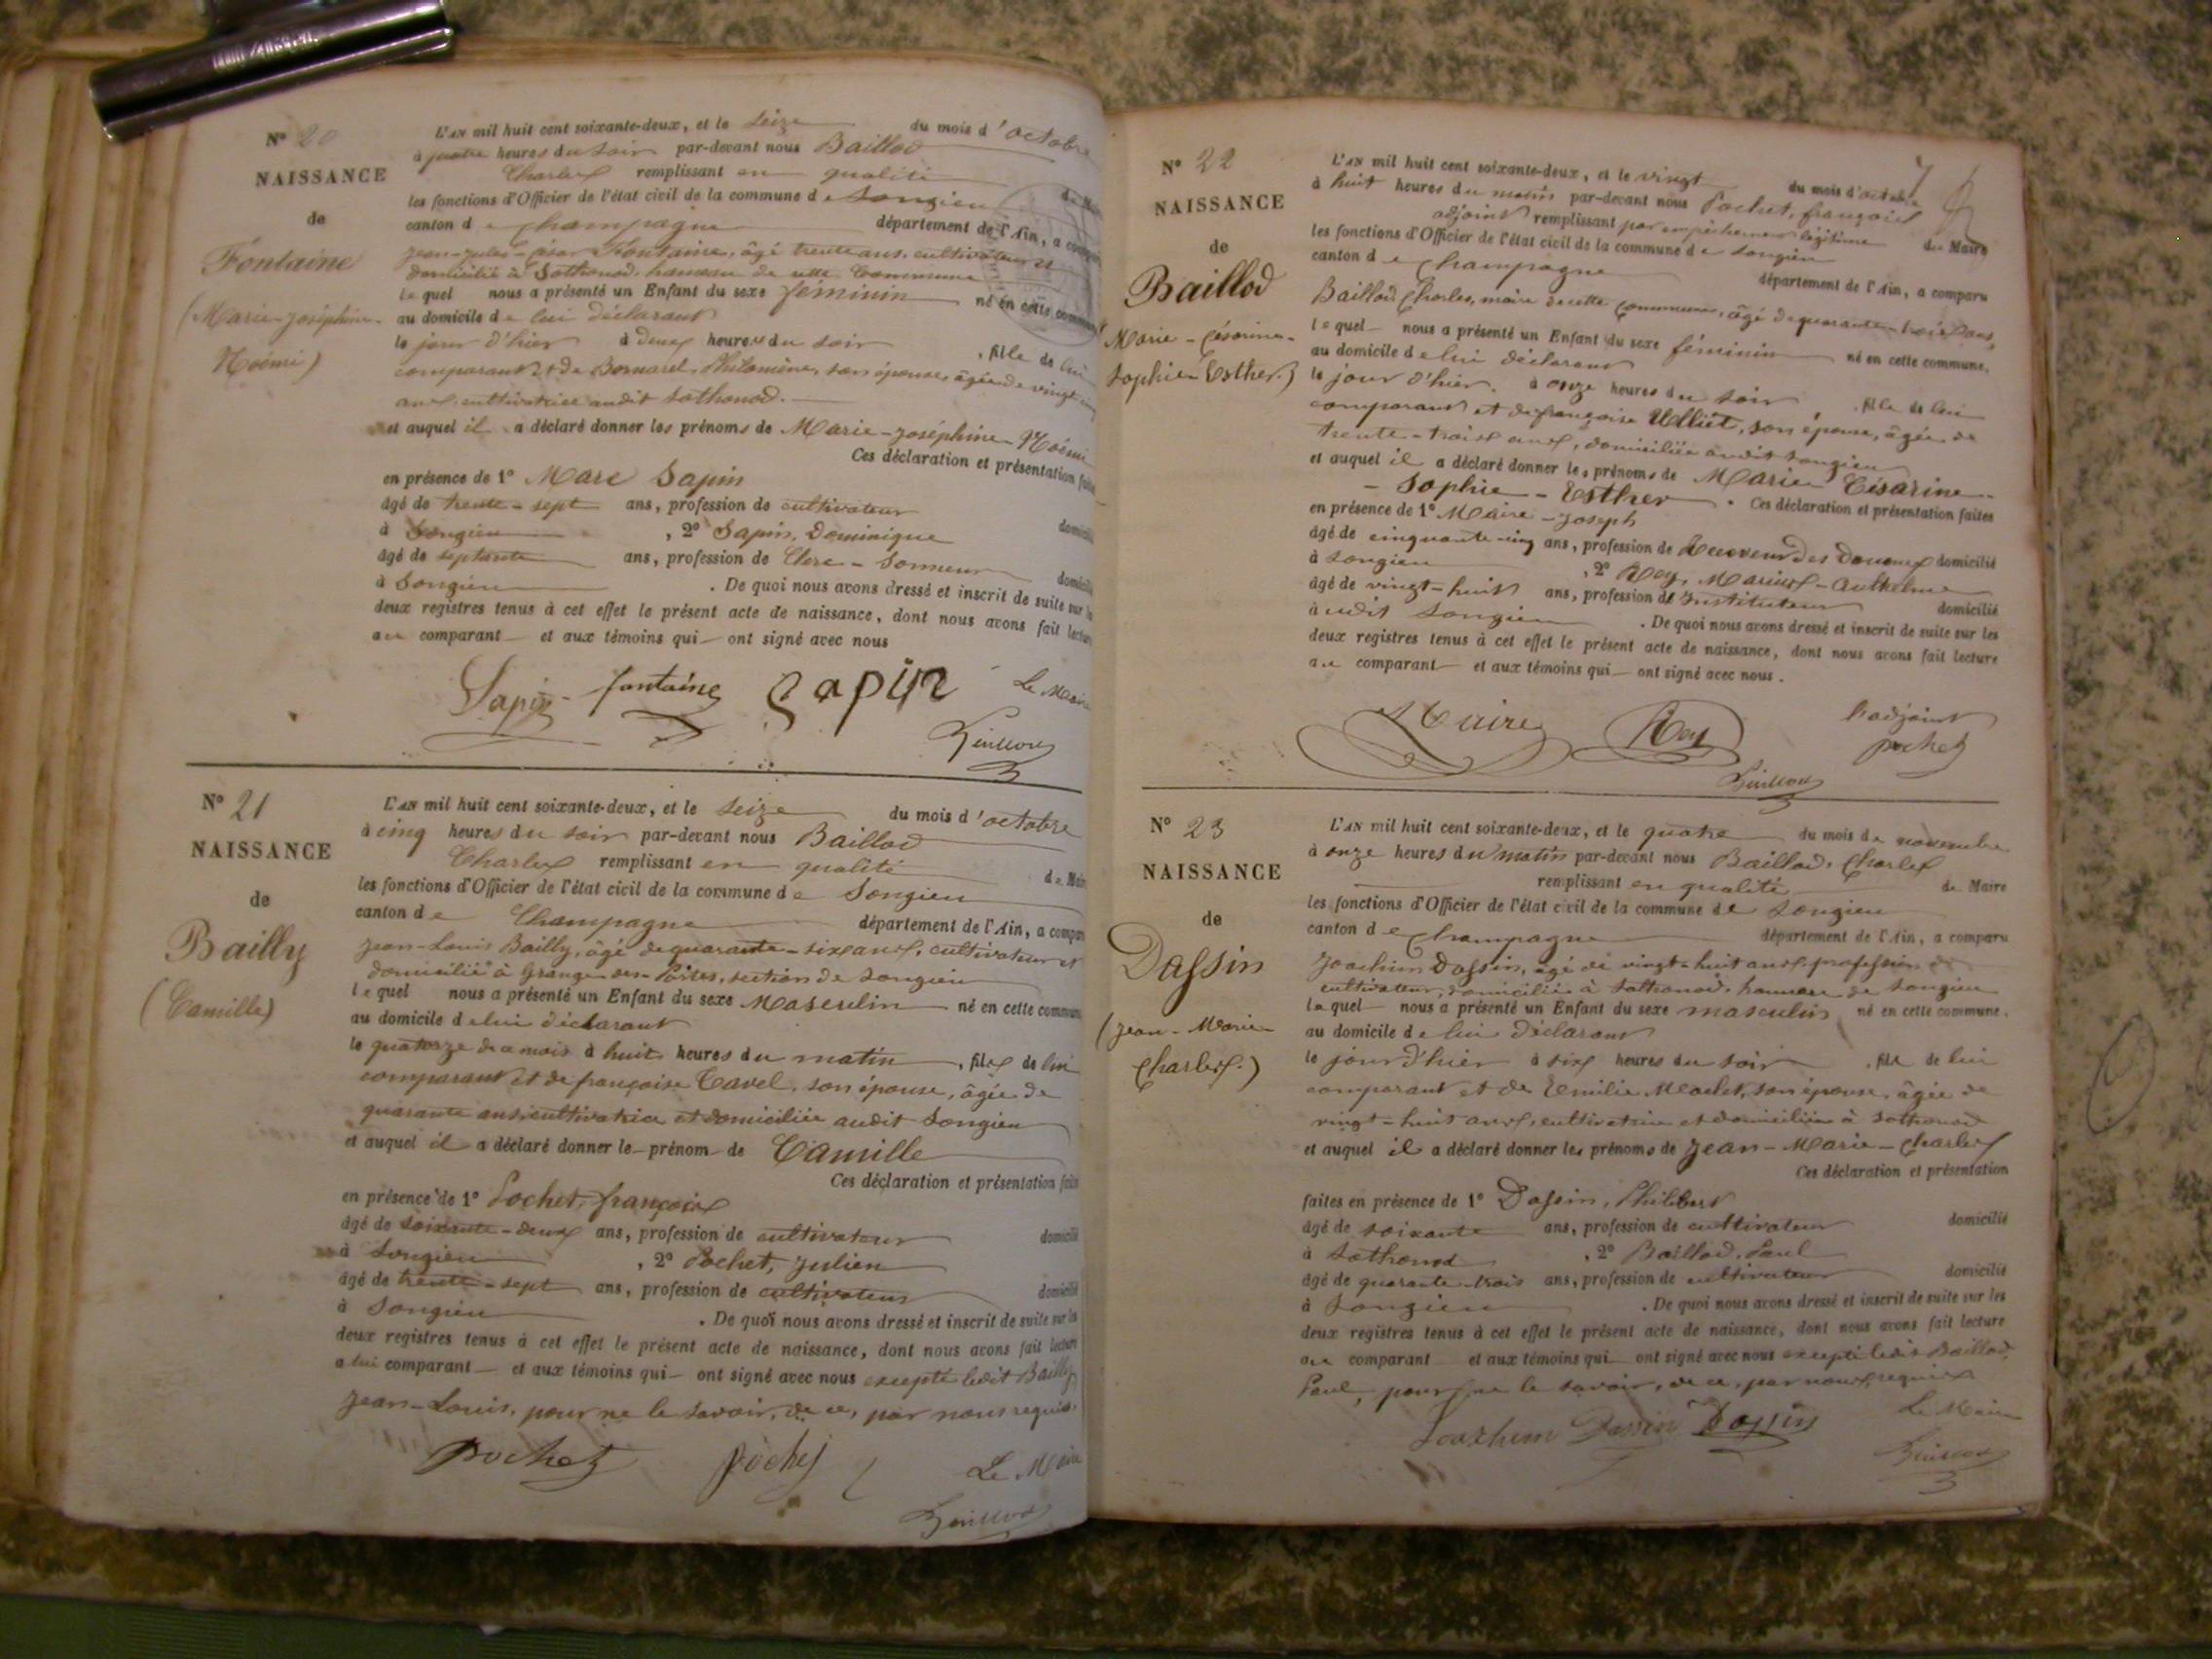 N° 20
NAISSANCE
de
Fontaine
(Marie-Joséphine-
Noémi)
L'AN mil huit cent soixante-deux, et le seize du mois d'octobre
à quatre heures du soir par-devant nous Baillod
Charles remplissant en qualité de
les fonctions d'Officier de l'état civil de la commune de Songieu
canton de Champagne département de l'Ain, a
Jean-Jules-César Fontaine, âgé trente ans, cultivateur et
domicilié à Sothonod, hameau de cette commune
lequel nous a présenté un Enfant du sexe féminin né en cette
au domicile de lui déclarant
le jour d'hier à deux heures du soir, fille de lui
comparant et de Bornarel, Philomène, son épouse, âgée de vingt
ans, cultivatrice audit Sothonod.
et auquel il a déclaré donner les prénoms de Marie-Joséphine-Noémi
Ces déclaration et présentation
en présence de 1° Marc Sapin
âgé de trente-sept ans, profession de cultivateur
à Songieu, 2° Sapin, Dominique
âgé de septante ans, profession de Clerc-Sonneur
à Songieu. De quoi nous avons dressé et inscrit de suite sur
deux registres tenus à cet effet le présent acte de naissance, dont nous avons fait lecture
au comparant et aux témoins qui ont signé avec nous
Sapin fontaine Sapin Le Maire
Baillod
N° 21
NAISSANCE
de
Bailly
(Camille)
L'AN mil huit cent soixante-deux, et le seize du mois d'octobre
à cinq heures du soir par-devant nous Baillod
Charles remplissant en qualité de Maire
les fonctions d'Officier de l'état civil de la commune de Songieu
canton de Champagne département de l'Ain, a
Jean-Louis Bailly, âgé de quarante-six ans, cultivateur et
domicilié à Grange-des-Portes, section de Songieu
lequel nous a présenté un Enfant du sexe Masculin né en cette commune
au domicile de lui déclarant
le quatorze de ce mois à huit heures du matin, fils de lui
comparant et de françoise Cavel, son épouse, âgée de
quarante ans, cultivatrice et domiciliée audit Songieu
et auquel il a déclaré donner le prénom de Camille
Ces déclaration et présentation
en présence de 1° Pochet, françois
âgé de soixante-deux ans, profession de cultivateur domicilié
à Songieu, 2° Pochet, Julien
âgé de trente-sept ans, profession de cultivateur domicilié
à Songieu. De quoi nous avons dressé et inscrit de suite sur les
deux registres tenus à cet effet le présent acte de naissance, dont nous avons fait lecture
a lui comparant et aux témoins qui ont signé avec nous excepté ledit Bailly
Jean-Louis, pour ne le savoir, de ce, par nous requis.
Pochet pochet Le Maire
Baillod
7
N° 22
NAISSANCE
de
Baillod
Marie-Césarine-
Sophie-Esther)
L'AN mil huit cent soixante-deux, et le vingt du mois d'octobre
à huit heures du matin par-devant nous Pochet, françois
adjoint remplissant par empêchement légitime du Maire
les fonctions d'Officier de l'état civil de la commune de Songieu
canton de Champagne département de l'Ain, a comparu
Baillod, Charles, maire de cette commune, âgé de quarante-trois ans,
lequel nous a présenté un Enfant du sexe féminin né en cette commune,
au domicile de lui déclarant
le jour d'hier, à onze heures du soir, fille de lui
comparant et de françoise Ulliet, son épouse, âgée de
trente-trois ans, domiciliée audit Songieu
et auquel il a déclaré donner les prénoms de Marie Césarine-
- Sophie-Esther. Ces déclaration et présentation faites
en présence de 1° Maire-Joseph
âgé de cinquante-cinq ans, profession de Receveur des Douanes domicilié
à Songieu, 2° Rey, Marius-Anthelme
âgé de vingt-huit ans, profession d'Instituteur domicilié
audit Songieu. De quoi nous avons dressé et inscrit de suite sur les
deux registres tenus à cet effet le présent acte de naissance, dont nous avons fait lecture
au comparant et aux témoins qui ont signé avec nous.
Maire Rey L'adjoint
pochet
Baillod
N° 23
NAISSANCE
de
Dassin
(Jean-Marie-
Charles.)
L'AN mil huit cent soixante-deux, et le quatre du mois de novembre
à onze heures du matin par-devant nous Baillod, Charles
remplissant en qualité de Maire
les fonctions d'Officier de l'état civil de la commune de Songieu
canton de Champagne département de l'Ain, a comparu
Joachim Dassin, âgé de vingt-huit ans, profession de
cultivateur, domicilié à Sothonod, hameau de Songieu
lequel nous a présenté un Enfant du sexe masculin né en cette commune,
au domicile de lui déclarant
le jour d'hier à six heures du soir, fils de lui
comparant et de Emilie Mochet, son épouse, âgée de
vingt-huit ans, cultivatrice et domiciliée à Sothonod
et auquel il a déclaré donner les prénoms de Jean-Marie-Charles
Ces déclaration et présentation
faites en présence de 1° Dassin, Philibert
âgé de soixante ans, profession de cultivateur domicilié
à Sothonod, 2° Baillod, Paul
âgé de quarante-trois ans, profession de cultivateur domicilié
à Songieu. De quoi nous avons dressé et inscrit de suite sur les
deux registres tenus à cet effet le présent acte de naissance, dont nous avons fait lecture
au comparant et aux témoins qui ont signé avec nous excepté ledit Baillod,
Paul, pour ne le savoir, de ce, par nous, requis
Joachim Dassin Dassin Le Maire
Baillod